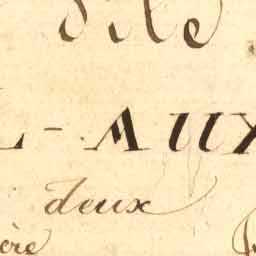 dite
L-AUX
deux
ère